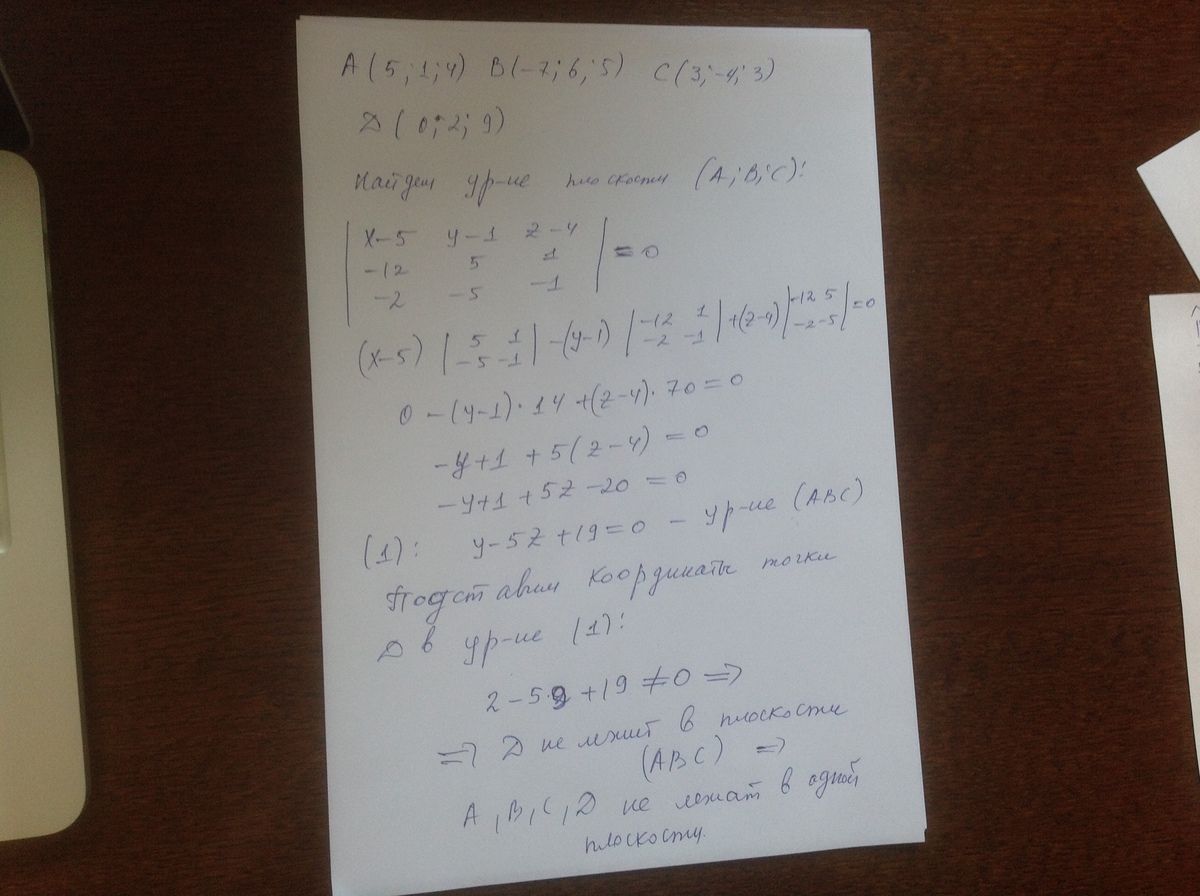 А (5; 1; 4) В (-7; 6; 5) С (3; -4; 3)
Д ( 0; 2; 9)
Найдем ур-ие плоскости (А; В; С):
| x-5 y-1 z-4 |
| -12 5 1 | = 0
| -2 -5 -1 |
(x-5) | 5 1 | -(y-1) | -12 1 | +(z-4) | -12 5 | =0
| -5 -1 | | -2 -1 | | -2 -5 |
0 - (y-1)·14 +(z-4)·70 = 0
-y+1 +5(z-4) = 0
-y+1 +5z -20 = 0
(1): y-5z+19=0 - ур-ие (АВС)
Подставим координаты точки
Д в ур-ие (1):
2-5·9+19 ≠ 0 =>
=> Д не лежит в плоскости
(АВС) =>
А, В, С, Д не лежат в одной
плоскости.